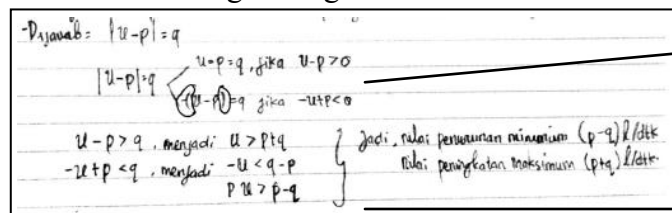 -Dijawab = |u-p| = q
|u-p|=q
u-p=q, jika u-p>0
-(u-p)=q jika -u+p<0
u-p>q, menjadi u>p+q
-u+p<q, menjadi -u<q-p
p u>p-q
Jadi, nilai penurunan minimum (p-q) l/dtk
Nilai peningkatan maksimum (p+q) l/dtk.